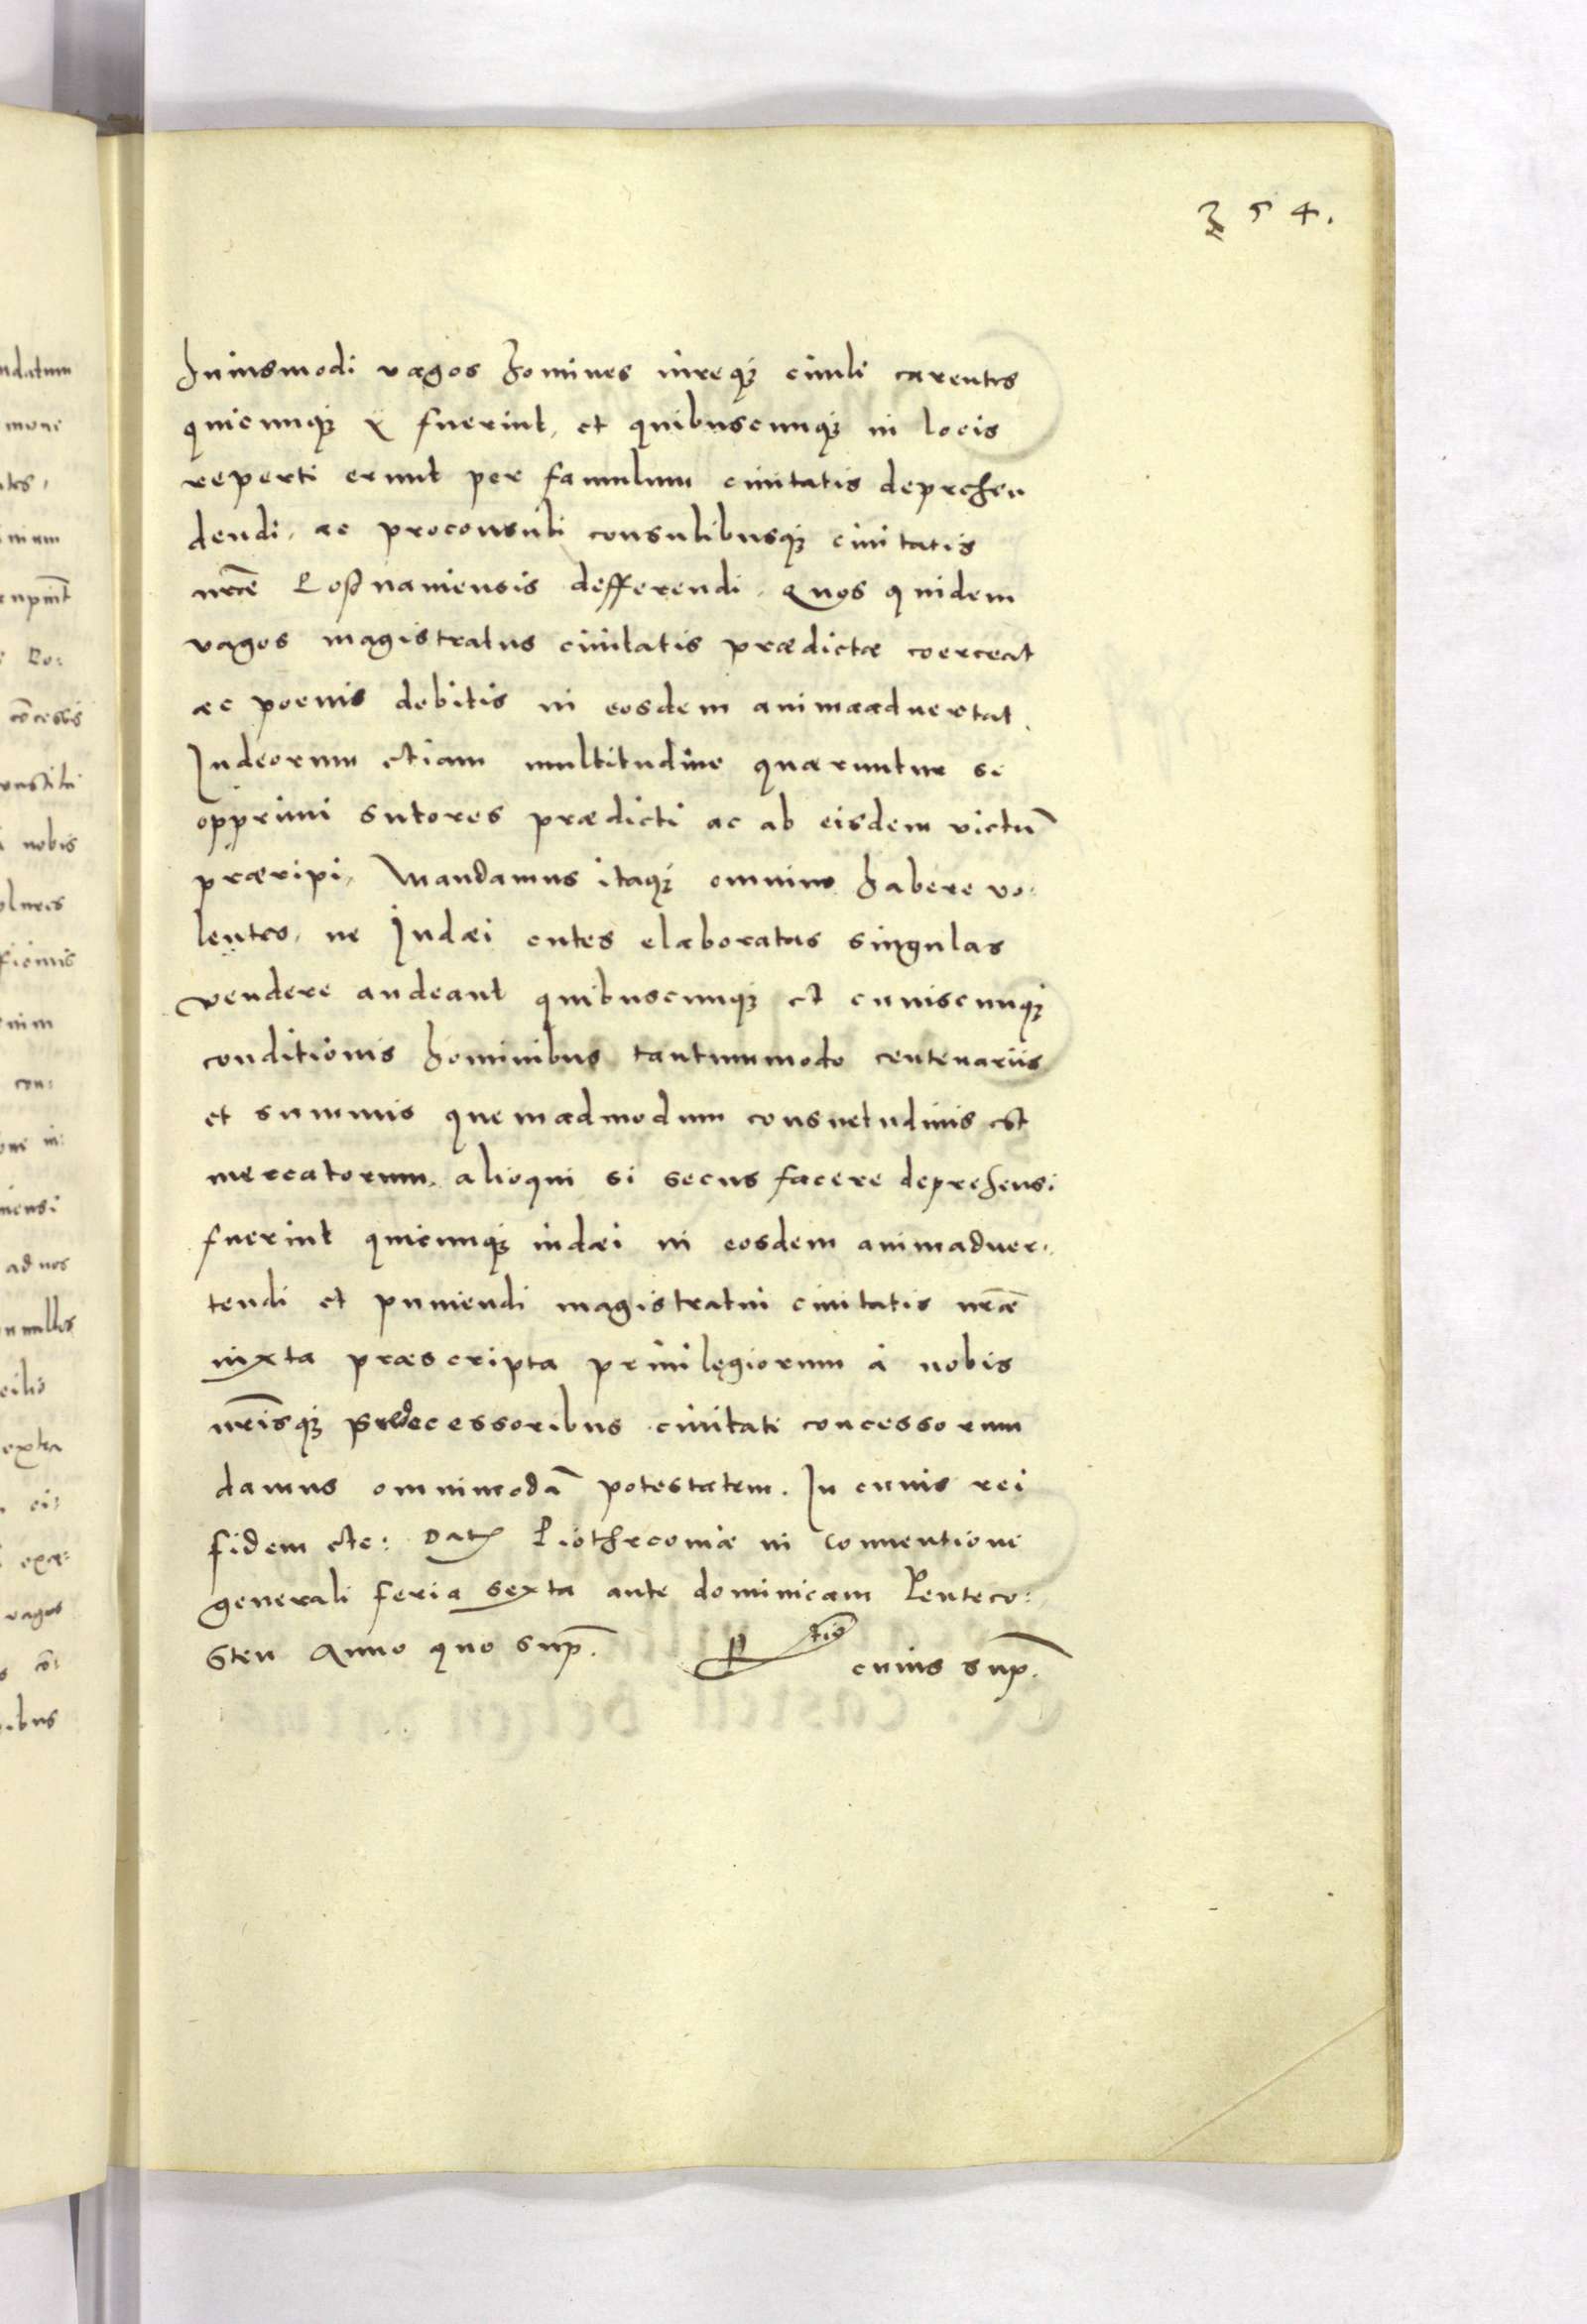 354.
huiusmodi vagos homines iureq; ciuili carentes
quicunq; fuerint, et quibuscunq; in locis
reperti erunt per famulum ciuitatis deprehen
dendi, ac proconsuli consulibusq; ciuitatis
nr̄ae Posnaniensis defferendi. Quos quidem
vagos magistratus ciuitatis prædictæ coerceat
ac poenis debitis in eosdem animaaduertat.
Iudeorum etiam multitudine quæruntur se
opprimi sutores prædicti ac ab eisdem victū
præripi, Mandamus itaq; omnino habere vo:
lentes, ne Iudæi cutes elaboratas singulas
vendere audeant quibuscunq; et cuiuscunq;
conditionis hominibus tantummodo centenariis
et summis quemadmodum consuetudinis est
mercatorum, alioqui si secus facere deprehensi
fuerint quicunq; iudæi in eosdem animaduer:
tendi et puniendi magistratui ciuitatis nr̄æ
iuxta præscripta priuilegiorum à nobis
nr̄isq; prædecessoribus ciuitati concessorum
damus omnimodā potestatem. In cuius rei
fidem etc: Dat Piothrcouiæ in conuentione
generali feria sexta ante dominicam Penteco:
sten Anno quo sup.
R tio cuius sup.
ndatum
nobis
ad nos
extra
vagos